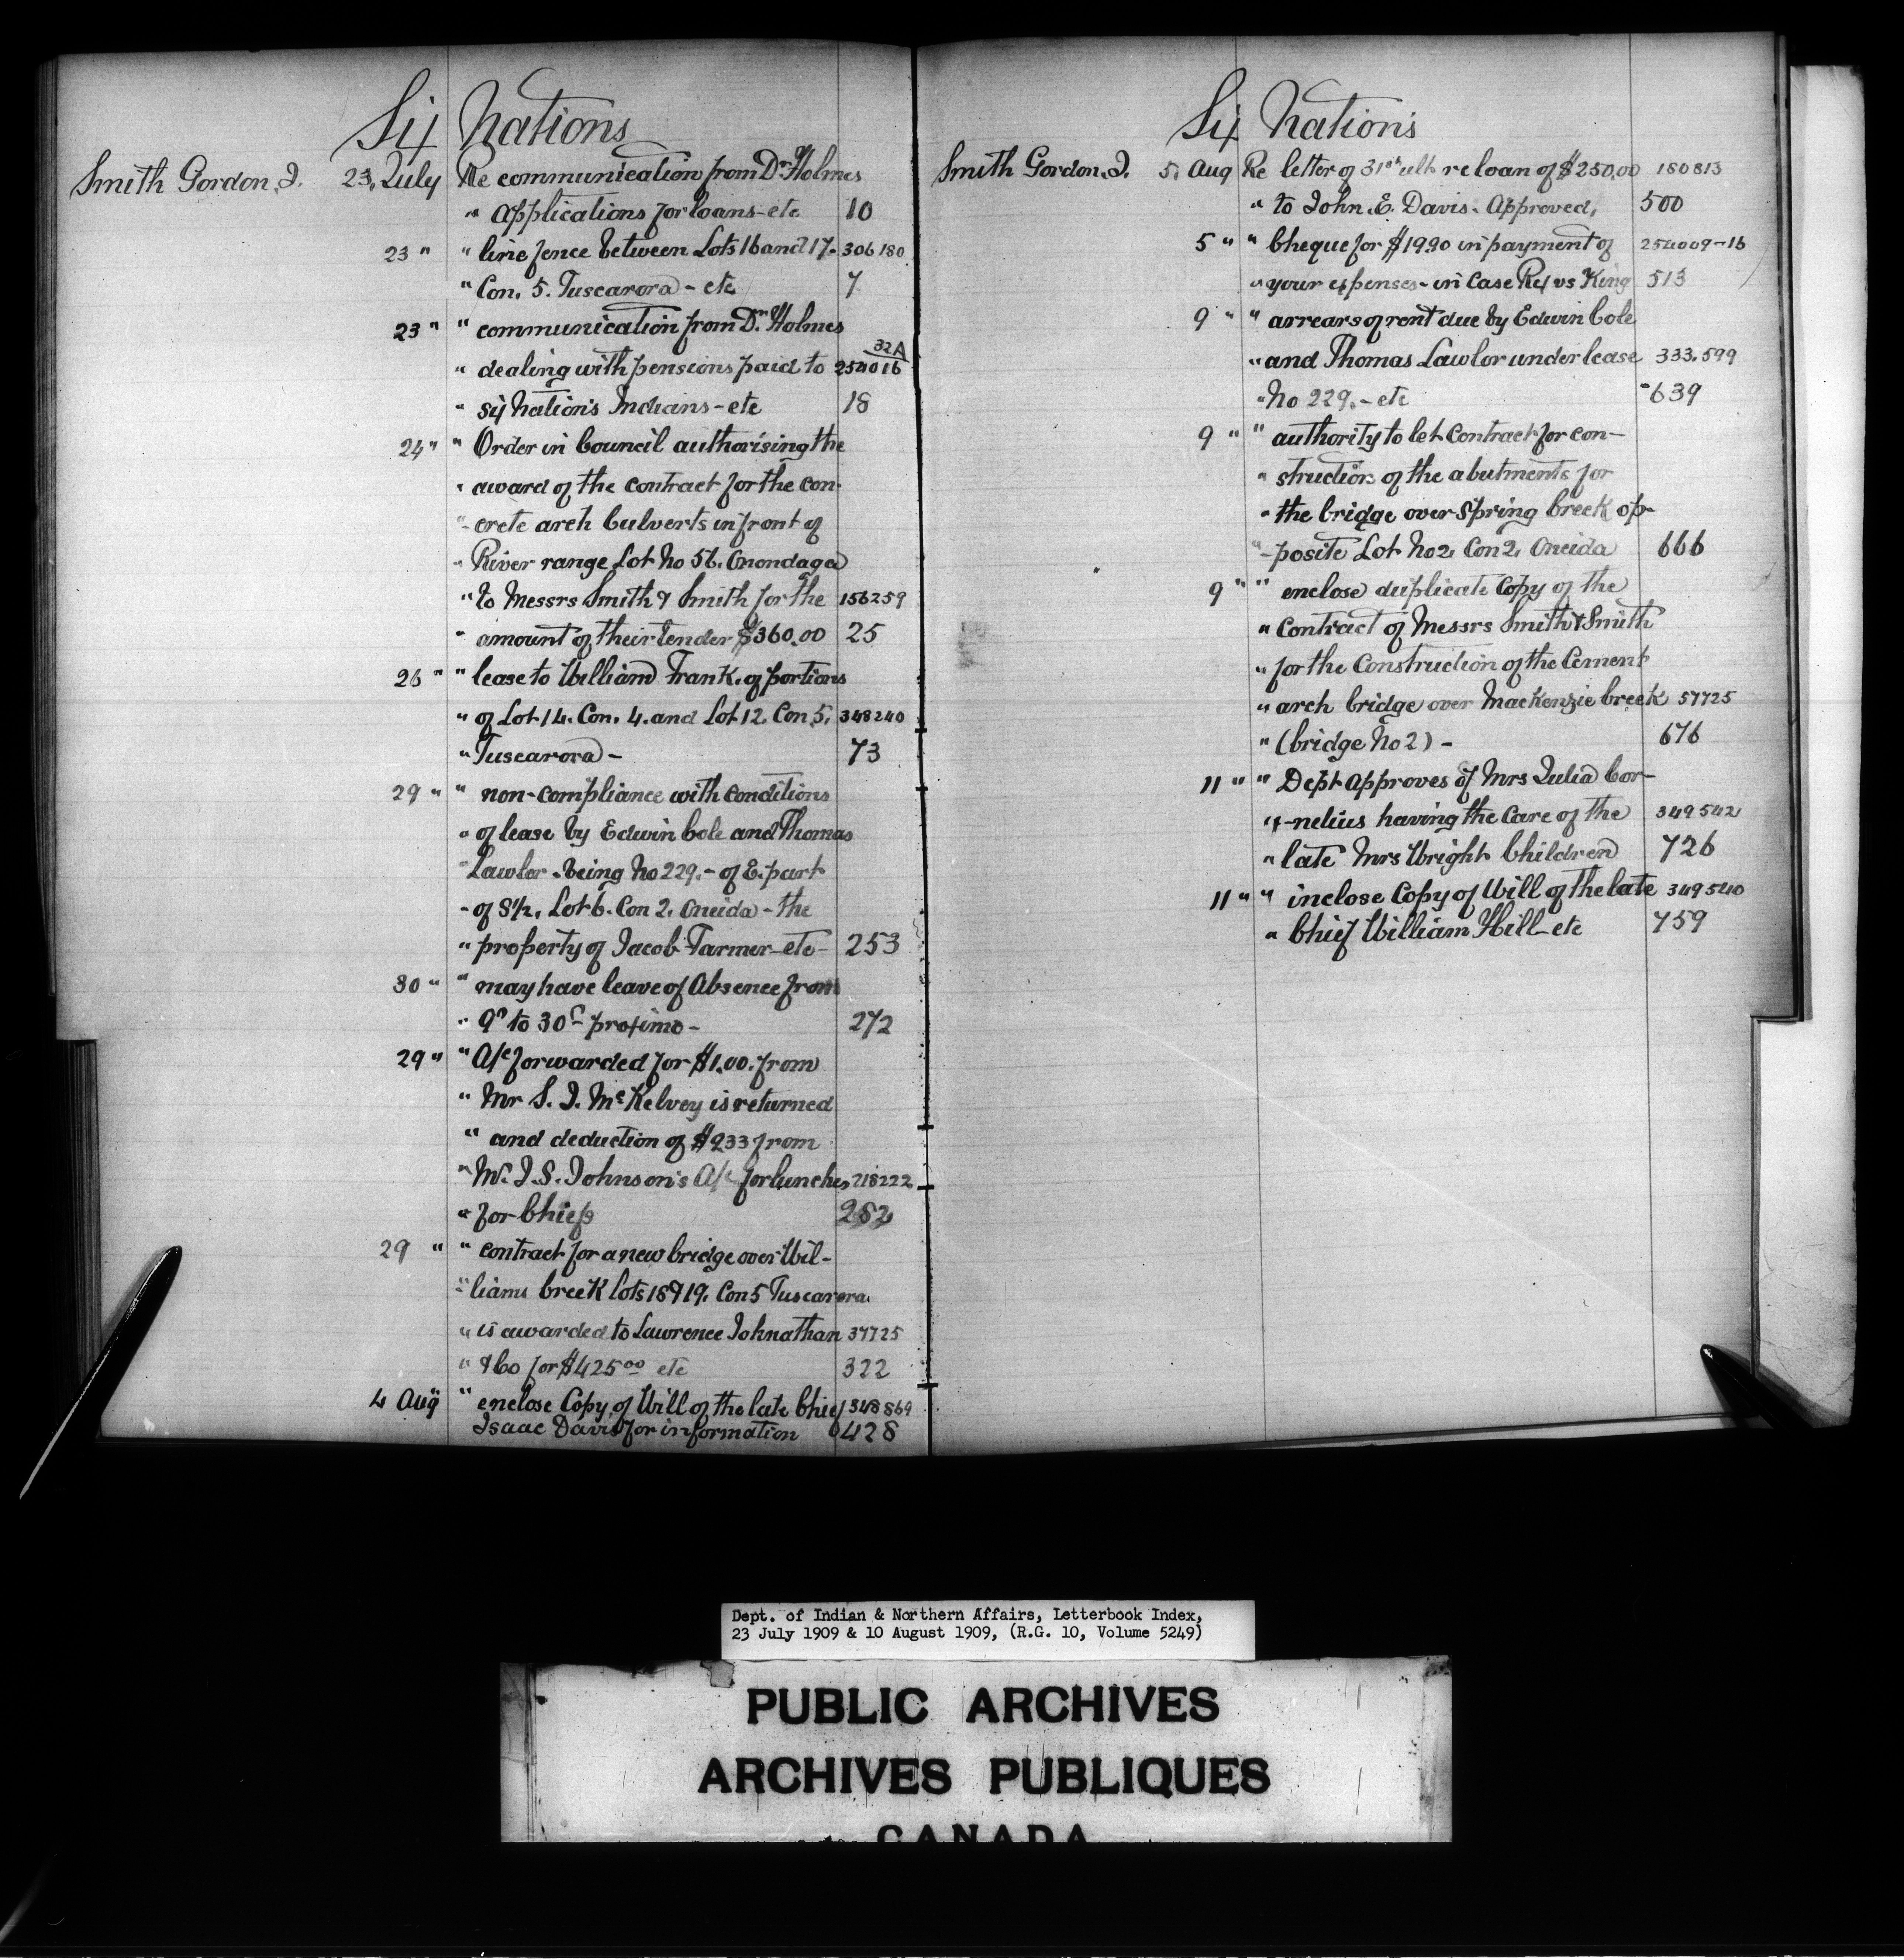 Six Nations
Smith Gordon J. 23. July Re communication from Dr. Holmes
" applications for loans - etc 10
23 " " line fence between Lots 16 and 17. 306180
" Con. 5. Tuscarora - etc 7
23 " " communication from Dr. Holmes
" dealing with pensions paid to 254016 32A
" six Nation's Indians - etc 18
24 " " Order in Council authorising the
" award of the contract for the con-
" crete arch Culverts in front of
" River range Lot No 56. Onondaga
" to Messrs Smith & Smith for the 156259
" amount of their tender $360.00 25
26 " " lease to William Frank. of portions
" of Lot 14. Con. 4. and Lot 12. Con 5. 348240
" Tuscarora - 73
29 " " non-compliance with conditions
" of lease by Edwin Cole and Thomas
" Lawlor. being No 229. - of E. part
" of S½. Lot 6. Con 2. Oneida - the
" property of Jacob Farmer - etc - 253
30 " " may have leave of Absence from
" 9th to 30th proximo - 272
29 " " A/c forwarded for $1.00. from
" Mr S. J. McKelvey is returned
" and deduction of $233 from
" Mr. J. S. Johnson's A/c for lunches 218222
" for Chiefs 282
29 " " contract for a new bridge over Wil-
" liams Creek Lots 18 & 19. Con 5 Tuscarora.
" is awarded to Lawrence Johnathan 37725
" & Co for $425.00 etc 322
4 Aug " enclose Copy of Will of the late Chief 348869
Isaac Davis for information 428
Six Nation's
Smith Gordon. J. 5. Aug Re letter of 31st ult re loan of $250.00 180813
" to John. E. Davis. Approved, 500
5 " " Cheque for $19.90 in payment of 254009-16
" your expenses - in Case Rex vs King 513
9 " " arrears of rent due by Edwin Cole
" and Thomas Lawlor under lease 333.599
" No 229. - etc 639
9 " " authority to let Contract for con-
" struction of the abutments for
" the bridge over Spring Creek op-
" posite Lot No 2, Con 2, Oneida 666
9 " " enclose duplicate Copy of the
" Contract of Messrs Smith & Smith
" for the Construction of the Cement
" arch bridge over Mackenzie Creek 57725
" (bridge No 2) - 676
11 " " Dept approves of Mrs Julia Cor-
" -nelius having the Care of the 349542
" late Mrs Wright Children 726
11 " " inclose Copy of Will of the late 349540
" Chief William Hill - etc 759
Dept. of Indian & Northern Affairs, Letterbook Index,
23 July 1909 & 10 August 1909, (R.G. 10, Volume 5249)
PUBLIC ARCHIVES
ARCHIVES PUBLIQUES
CANADA